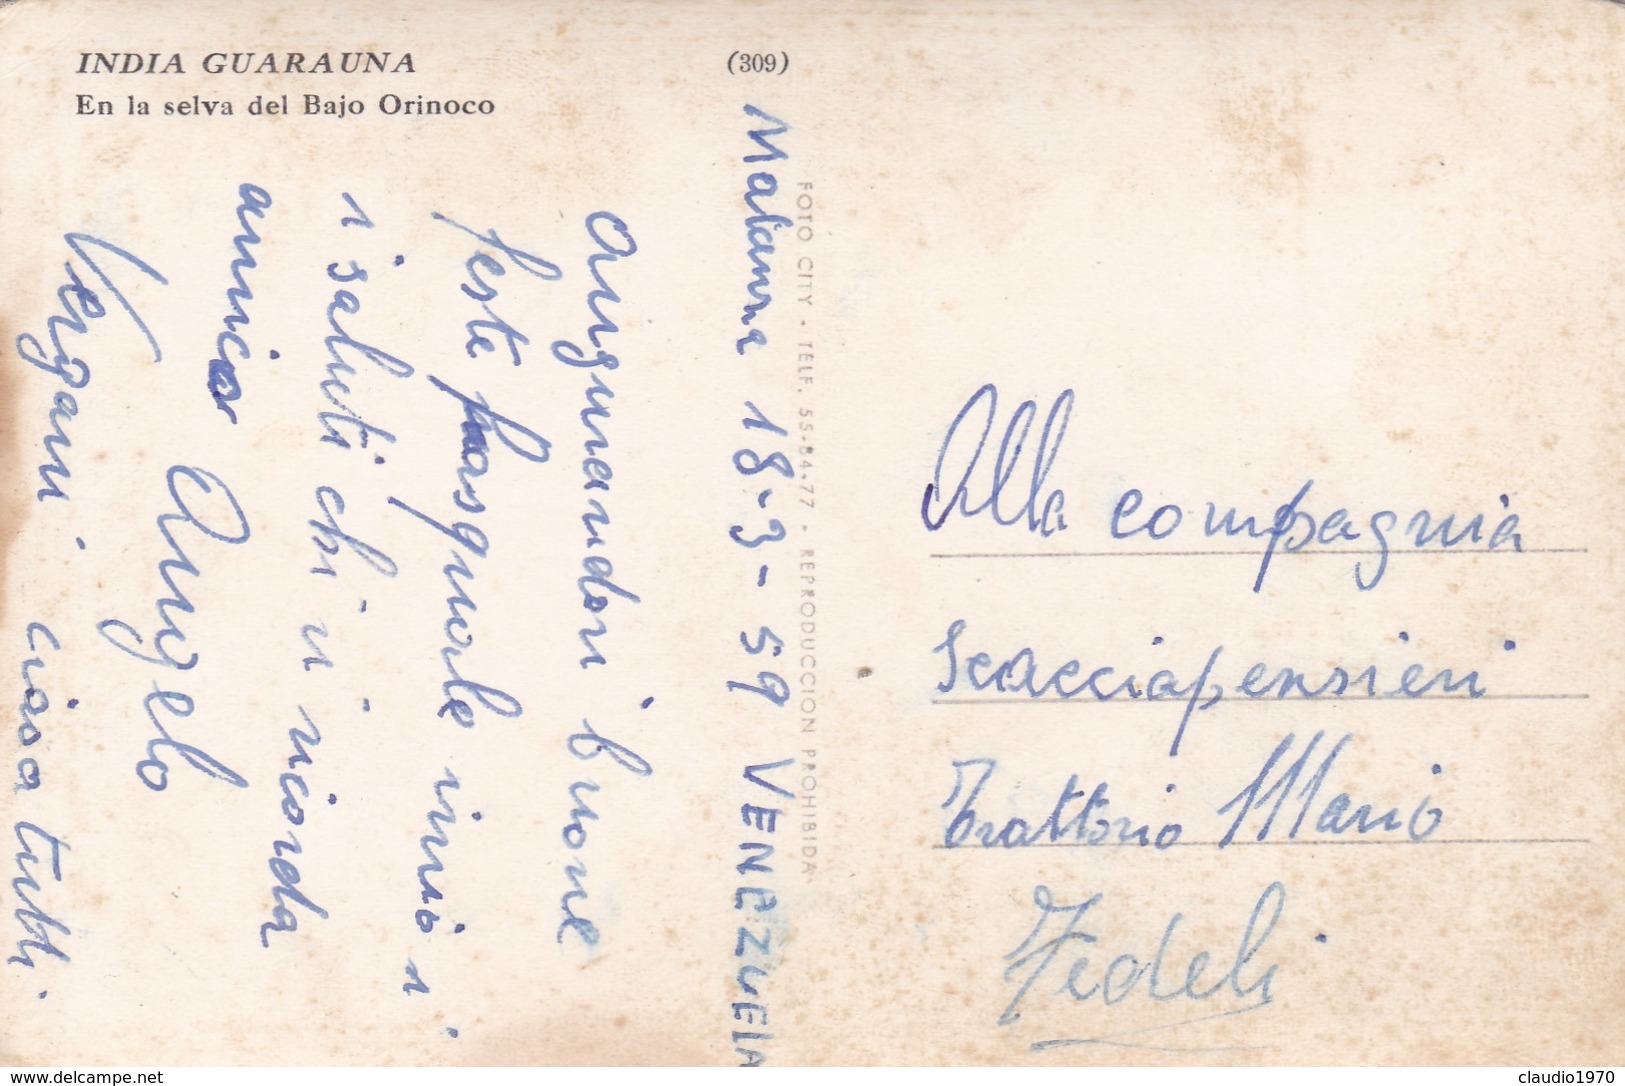 INDIA GUARAUNA
En la selva del Bajo Orinoco
(309)
18-3-59 VENEZUELA
FOTO CITY - TELF. 55-84-77 - REPRODUCCION PROHIBIDA
Augurandovi buone
feste pasquale invio i
i saluti chi vi ricorda
amico Angelo
Vergani. ciao a tutti.
Alla compagnia
Scacciapensieri
Trattorio Mario
Fedeli
www.delcampe.net
claudio1970